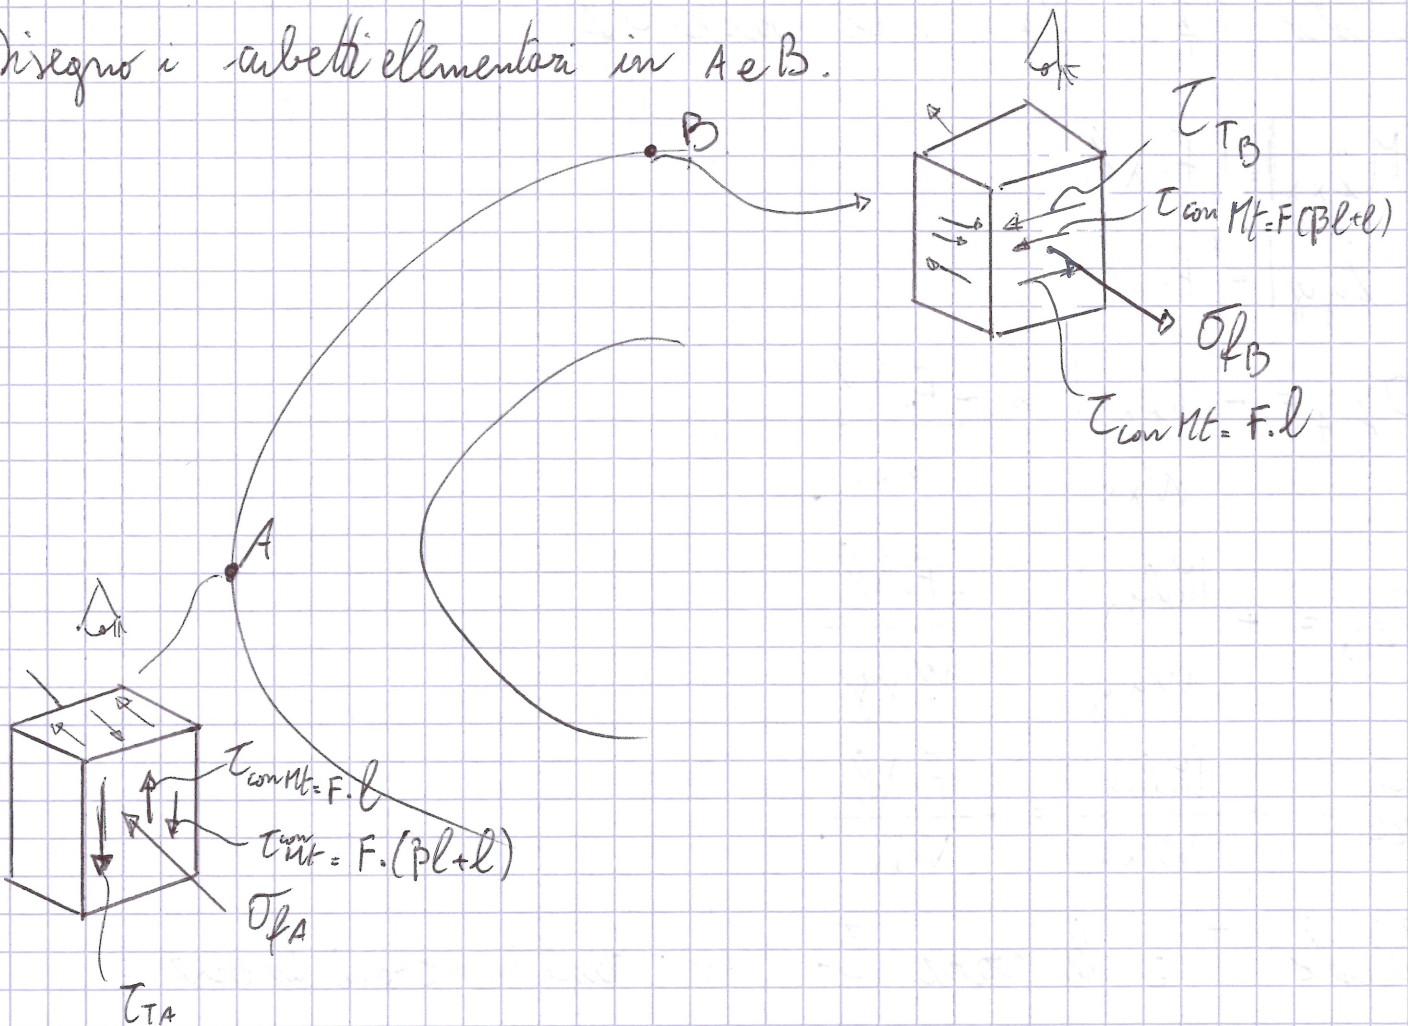 Disegno i cubetti elementari in A e B.
B
τ_TB
τ_con Mt = F(βl+l)
σ_fB
τ_con Mt = F.l
A
τ_con Mt = F.l
τ_con Mt = F.(βl+l)
σ_fA
τ_TA